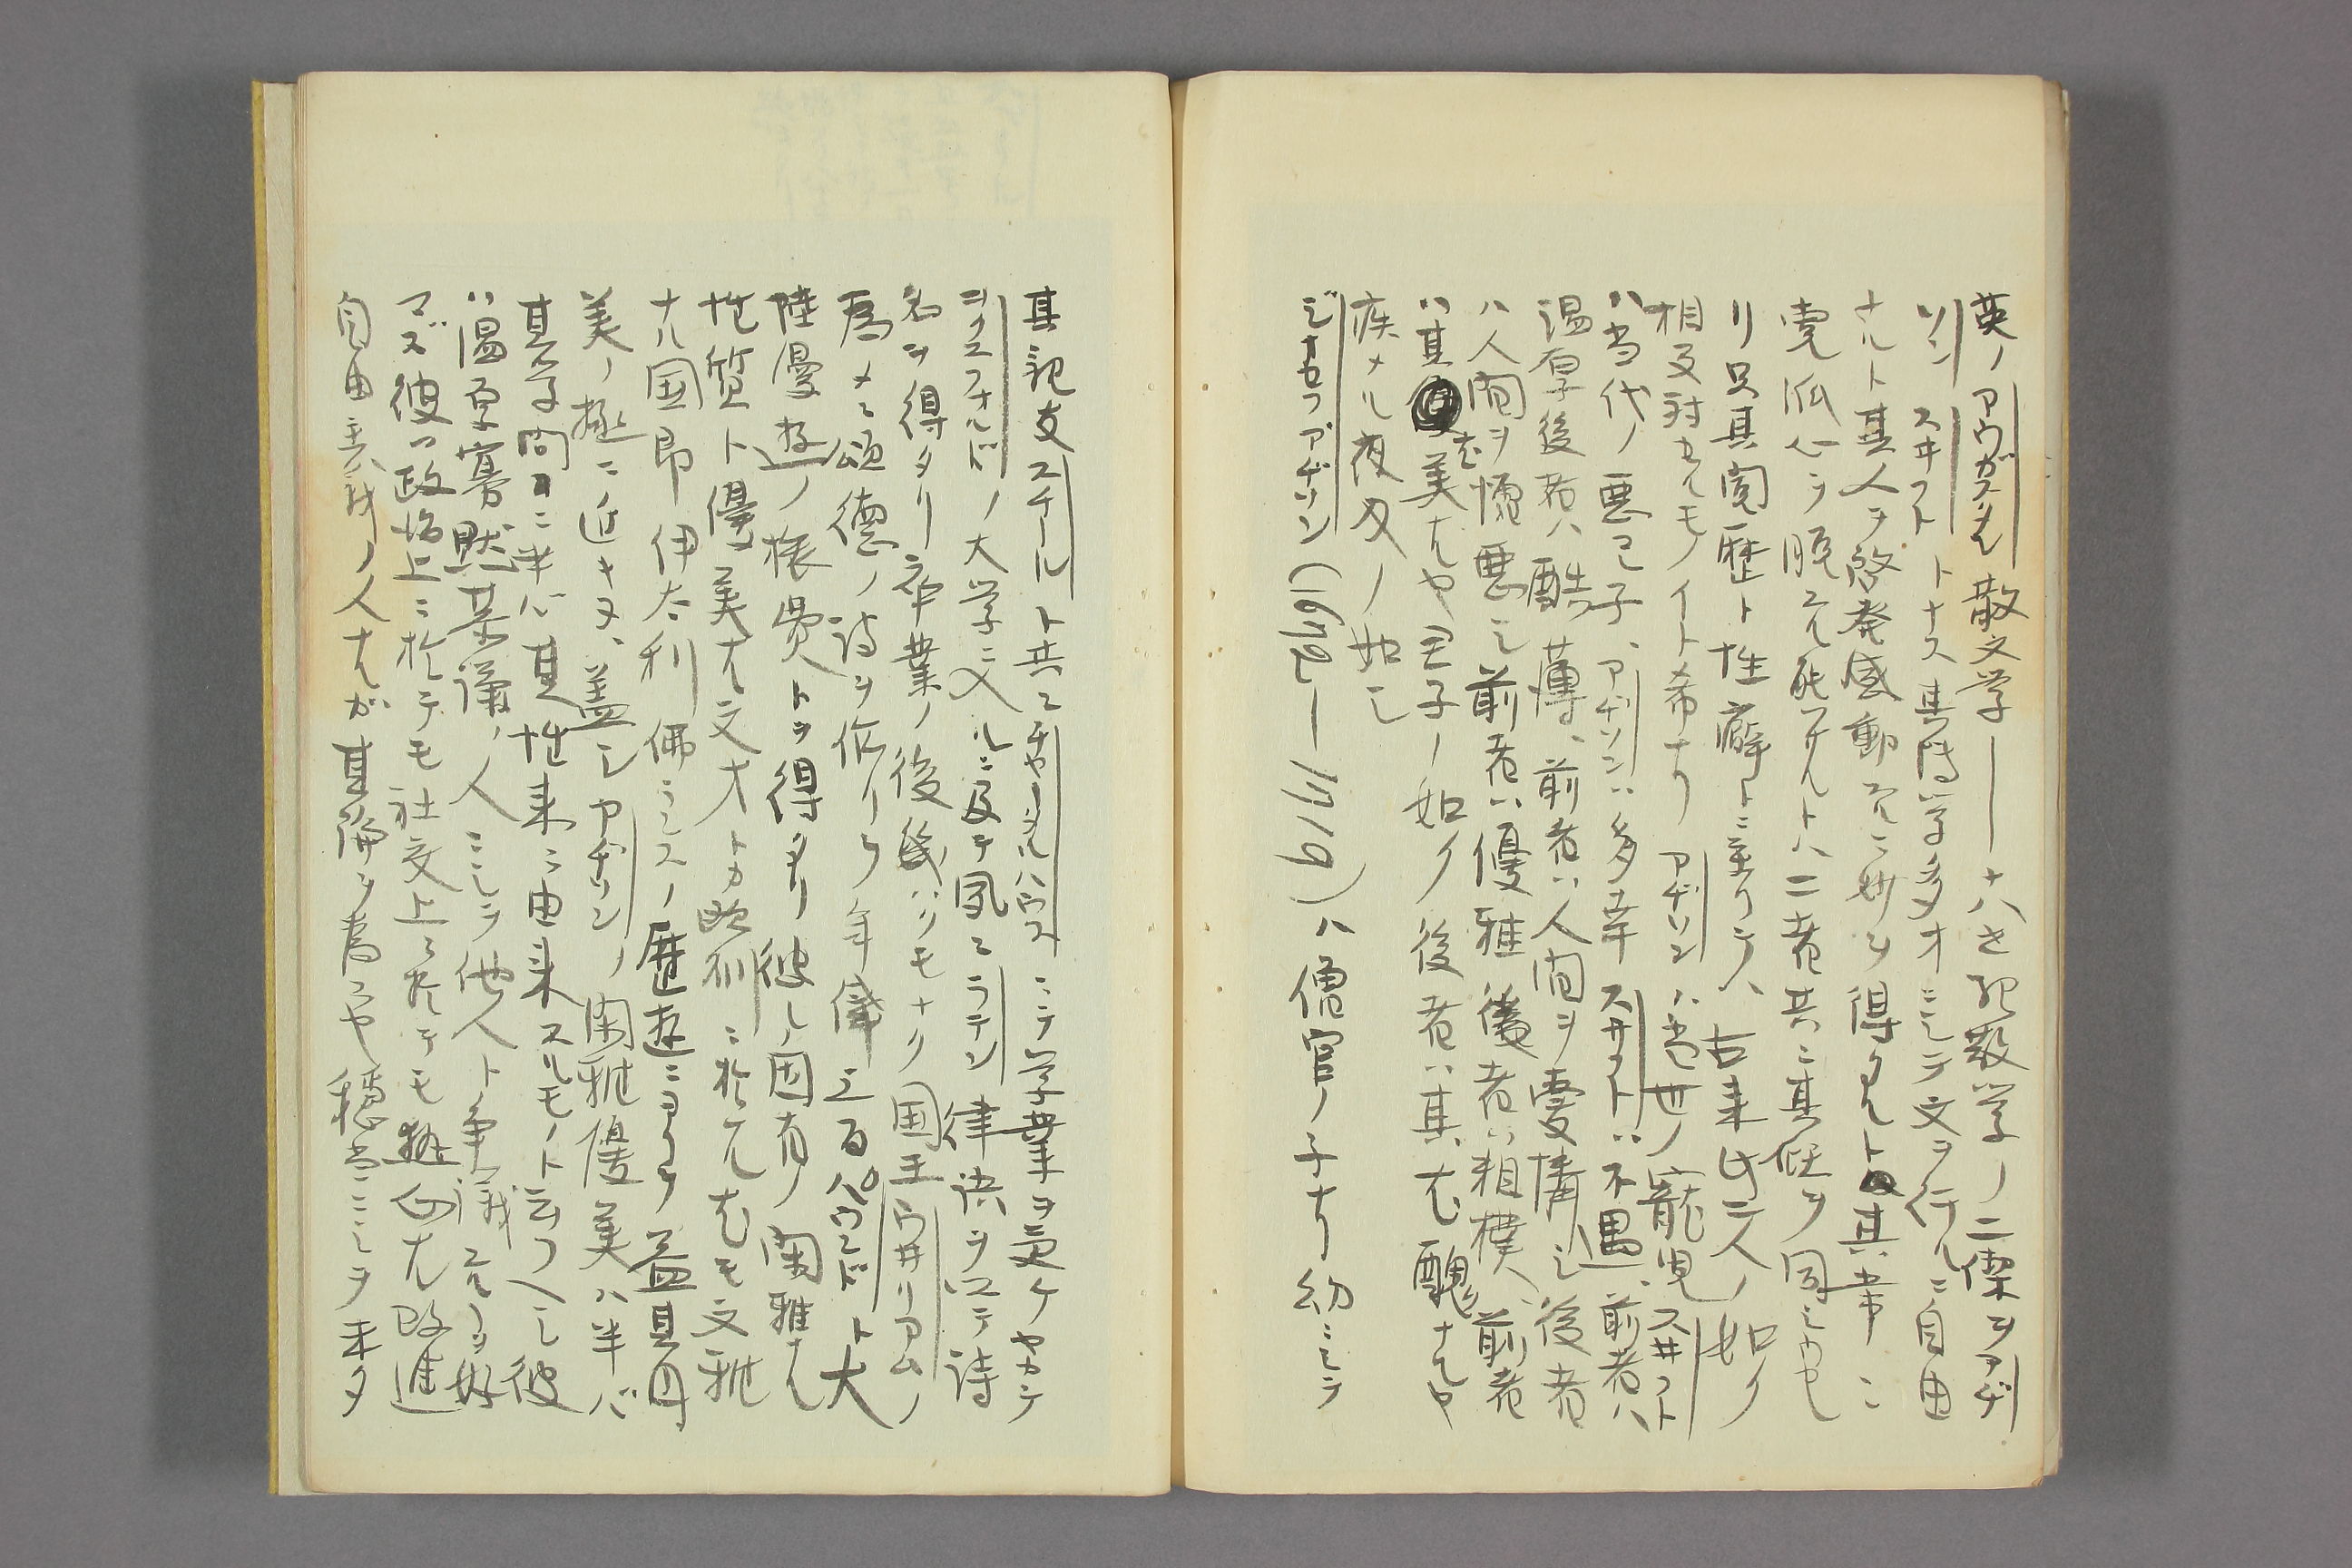 英ノアウガスタル散文学――十八世紀散学ノ二傑ヲアヂ
ソン スヰフト トナス其博学多才ニシテ文ヲ行ルニ自由
ナルト其人ヲ啓発感動スルニ妙ヲ得タルト其常ニ
売淫ヲ脱スル能ハザルトハ二者共ニ其伍ヲ同シウセ
リ只其閲歴ト性癖トニ至リテハ古来此二人ノ如ク
相反対セルモノイト希ナリ アヂソンハ当世ノ寵児スヰフト
ハ当代ノ悪マレ子、アヂソンハ多幸スヰフトハ不遇、前者ハ
温厚後者ハ酷薄、前者ハ人間ヲ愛憐シ後者
ハ人間ヲ憎悪シ前者ハ優雅後者ハ粗樸、前者
ハ其尤美ナルヤ王子ノ如ク後者ハ其尤醜ナルヤ
疾メル夜叉ノ如シ
ジオセフアヂソン(1672―1719)ハ僧官ノ子ナリ幼ニシテ
其親友スチールト共ニチャーターハウスニテ学業ヲ受ケヤガテ
ヲクスフォルドノ大学ニ入ルニ及テ夙ニラテン律決ヲ以テ詩
名ヲ得タリ卒業ノ後幾バクモナク国王ウヰリアムノ
為メニ頌徳ノ詩ヲ作リテ年俸三百パウンドト大
陸優遊ノ旅費トヲ得タリ彼レ固有ノ閑雅ナル
性質ト優美ナル文才トガ欧州ニ於ケル尤モ文雅
ナル国即伊太利佛ランスノ歴遊ニヨリテ益其円
美ノ極ニ近キヌ、蓋シアヂソンノ閑雅優美ハ半バ
其学問ニ半バ其性来ニ由来スルモノト云フベシ彼
ハ温厚寡黙恭謙ノ人ニシテ他人ト争議スルヲ好
マズ彼ハ政治上ニ於テモ社交上ニ於テモ熱心ナル改進
自由主義ノ人ナルガ其論ヲ為スヤ穏当ニシテ未タ